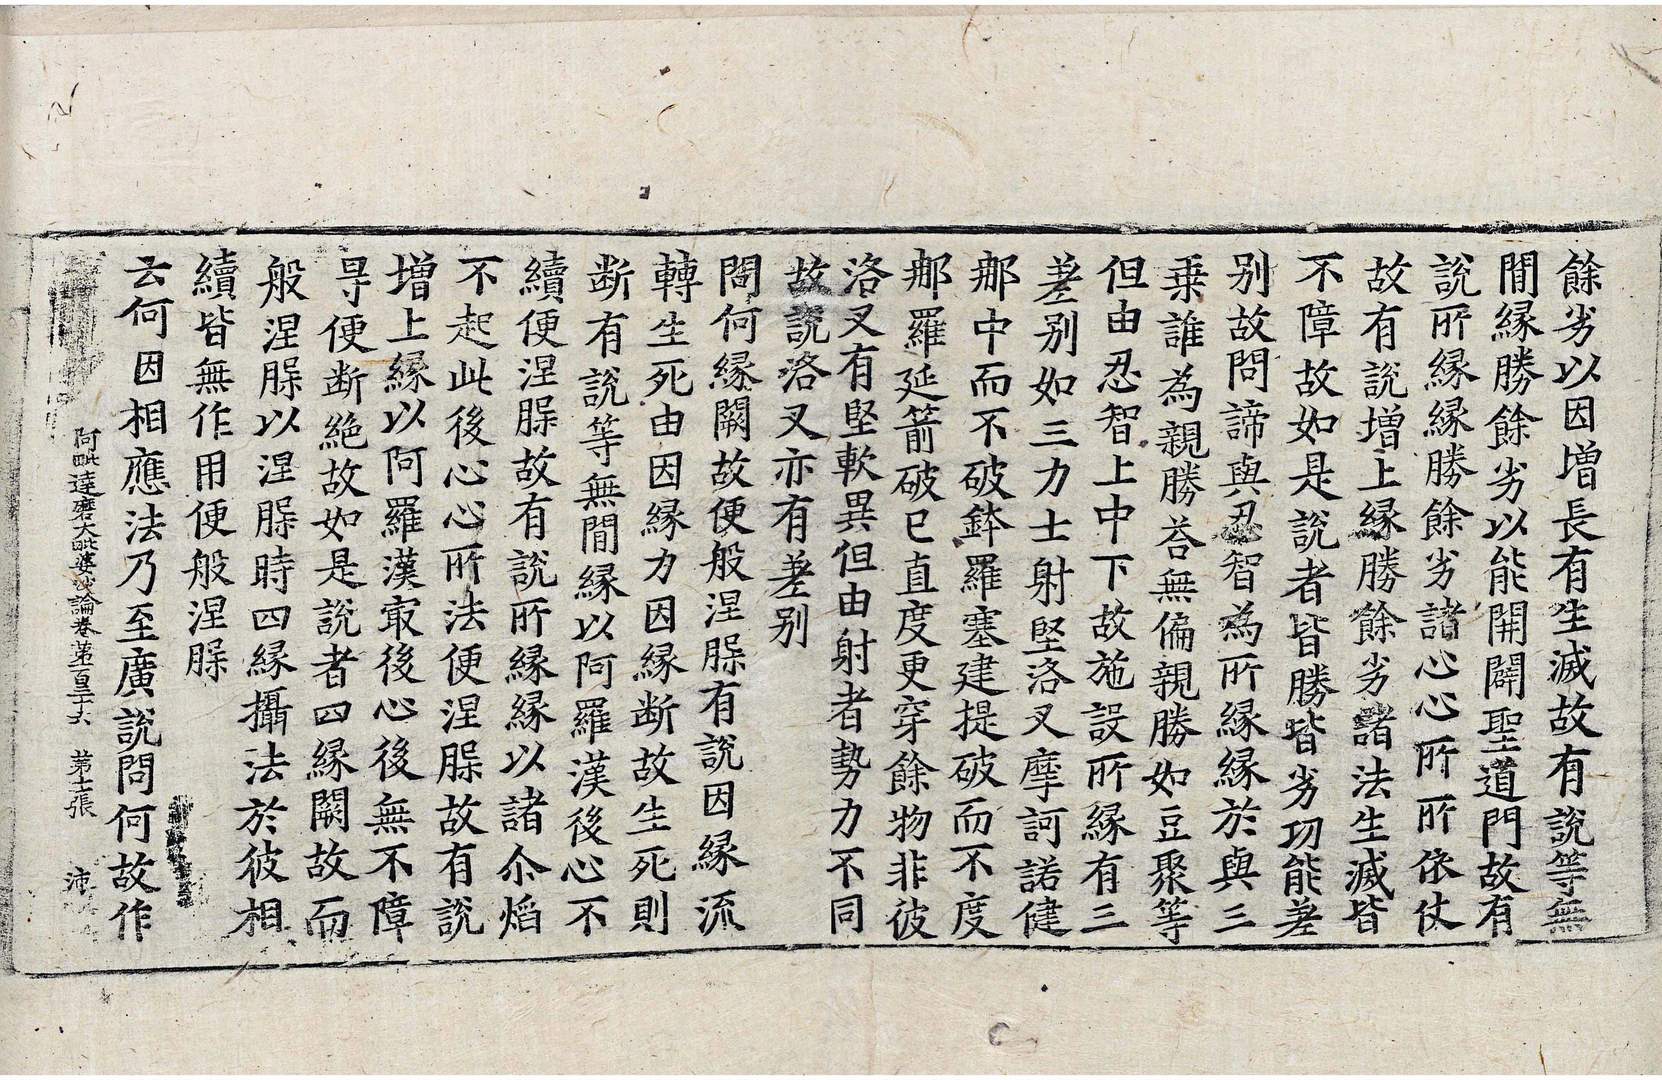 餘劣以因增長有生滅故有說等無
間縁勝餘劣以能開闢聖道門故有
說所縁縁勝餘劣諸心心所所依仗
故有說增上縁勝餘劣諸法生滅皆
不障故如是說者皆勝皆劣功能差
别故問諦與忍智為所縁縁於與三
乗誰為親勝荅無偏親勝如豆聚等
但由忍智上中下故施設所縁有三
差别如三力士射堅洛叉摩訶諾健
那中而不破鉢羅塞建提破而不度
那羅延箭破已直度更穿餘物非彼
洛叉有堅軟異但由射者勢力不同
故說洛叉亦有差别
問何縁闕故便般涅槃有說因縁流
轉生死由因縁力因縁断故生死則
断有說等無間縁以阿羅漢後心不
續便涅槃故有說所縁縁以諸尒焰
不起此後心心所法便涅槃故有說
增上縁以阿羅漢㝡後心後無不障
㝵便断絶故如是說者四縁闕故而
般涅槃以涅槃時四縁攝法於彼相
續皆無作用便般涅槃
云何因相應法乃至廣說問何故作
阿毗達磨大毗婆沙論卷第一百三十六 第十一張 沛